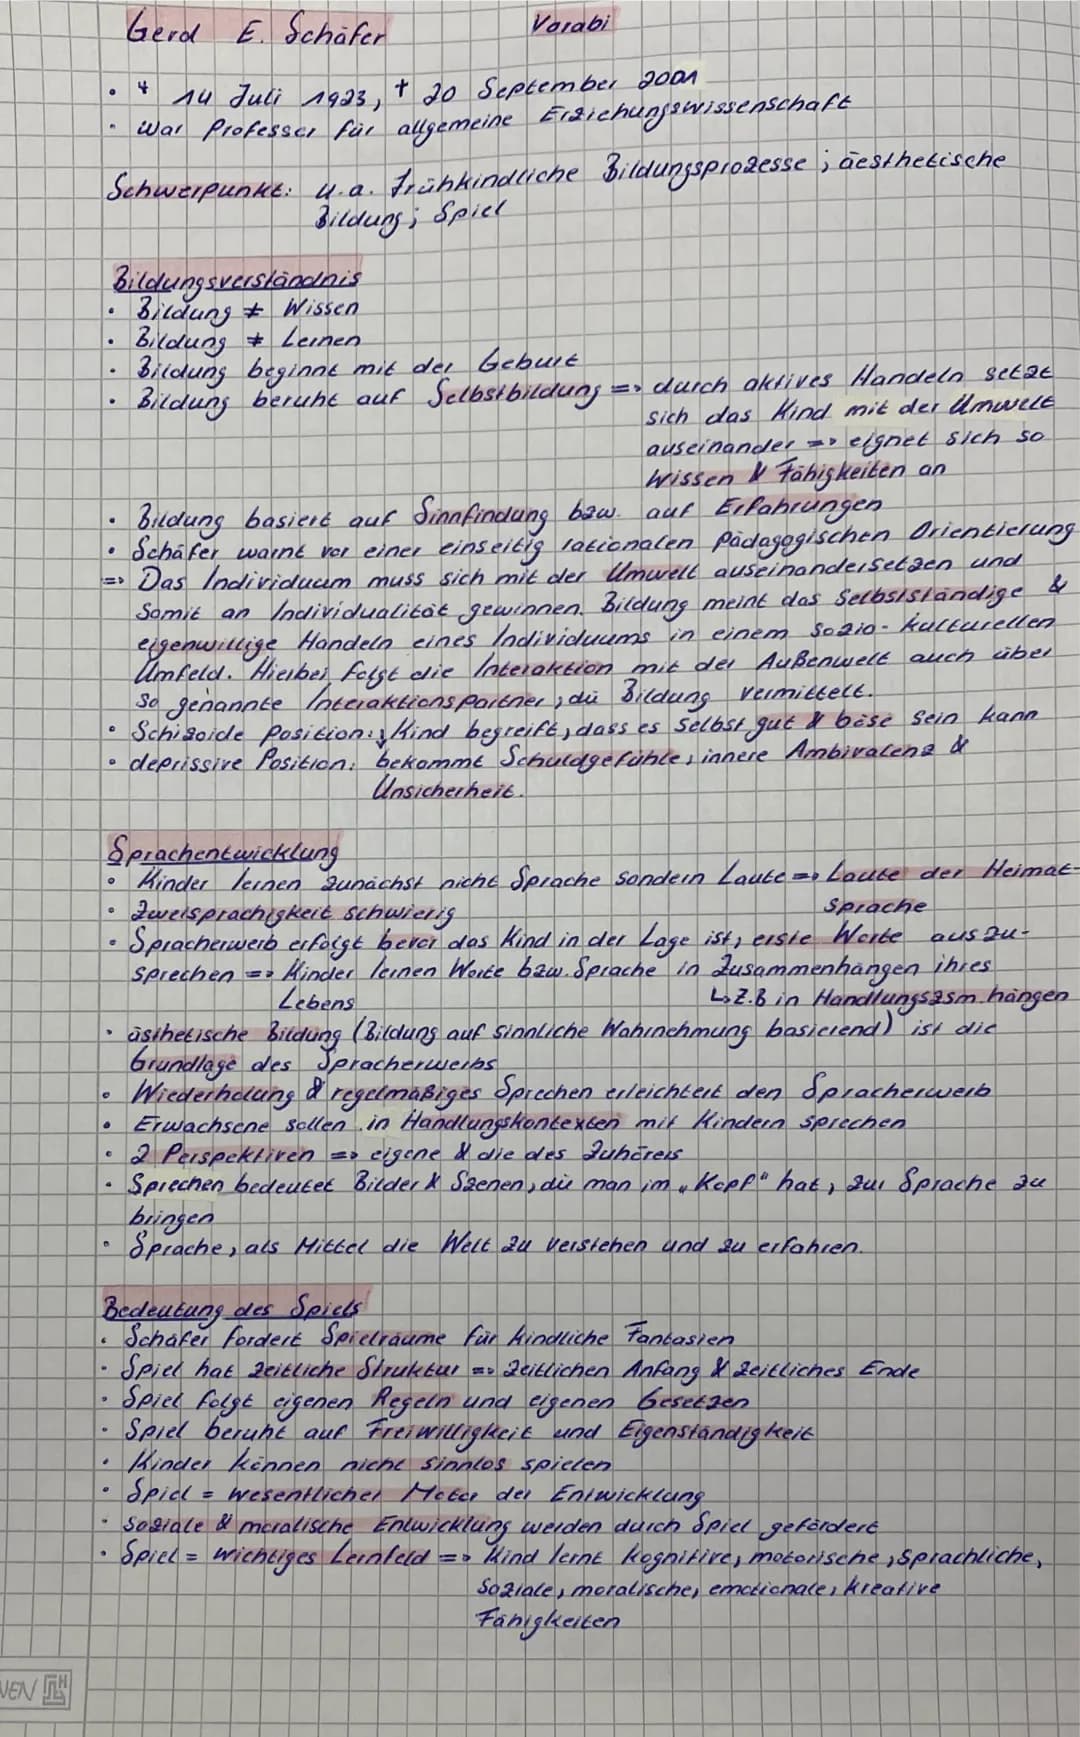 Gerd E. Schäfer Vorabi
• * 14 Juli 1923, † 20 September 2001
• War Professer für allgemeine Erziehungswissenschaft
Schwerpunkt: u.a. frühkindliche Bildungsprozesse; äesthetische
Bildung; Spiel
Bildungsverständnis
• Bildung ≠ Wissen
• Bildung ≠ Lernen
• Bildung beginnt mit der Geburt
• Bildung beruht auf Selbstbildung => durch aktives Handeln setzt
sich das Kind mit der Umwelt
auseinander => eignet sich so
Wissen & Fähigkeiten an
• Bildung basiert auf Sinnfindung bzw. auf Erfahrungen
• Schäfer warnt vor einer einseitig rationalen pädagogischen Orientierung
=> Das Individuum muss sich mit der Umwelt auseinandersetzen und
somit an Individualität gewinnen. Bildung meint das selbstständige &
eigenwillige Handeln eines Individuums in einem sozio-kulturellen
Umfeld. Hierbei folgt die Interaktion mit der Außenwelt auch über
so genannte Interaktionspartner, die Bildung vermittelt.
• Schizoide Position: Kind begreift, dass es selbst gut & böse sein kann
• depressive Position: ↓ bekommt Schuldgefühle, innere Ambivalenz &
Unsicherheit.
Sprachentwicklung
• Kinder lernen zunächst nicht Sprache sondern Laute => Laute der Heimat-
sprache
• Zweisprachigkeit schwierig
• Spracherwerb erfolgt bevor das Kind in der Lage ist, erste Worte auszu-
sprechen => Kinder lernen Worte bzw. Sprache in Zusammenhängen ihres
Lebens
↳ Z.B in Handlungszsm.hängen
• ästhetische Bildung (Bildung auf sinnliche Wahrnehmung basierend) ist die
Grundlage des Spracherwerbs
• Wiederholung & regelmäßiges Sprechen erleichtert den Spracherwerb
• Erwachsene sollen in Handlungskontexten mit Kindern sprechen
• 2 Perspektiven => eigene & die des Zuhörers
• Sprechen bedeutet Bilder & Szenen, die man im „Kopf" hat, zur Sprache zu
bringen
• Sprache, als Mittel die Welt zu verstehen und zu erfahren.
Bedeutung des Spiels
• Schäfer fordert Spielräume für kindliche Fantasien
• Spiel hat zeitliche Struktur => zeitlichen Anfang & zeitliches Ende
• Spiel folgt eigenen Regeln und eigenen Gesetzen
• Spiel beruht auf Freiwilligkeit und Eigenständigkeit
• Kinder können nicht sinnlos spielen
• Spiel = wesentlicher Motor der Entwicklung
• soziale & moralische Entwicklung werden durch Spiel gefördert
• Spiel = wichtiges Lernfeld => Kind lernt kognitive, motorische, sprachliche,
soziale, moralische, emotionale, kreative
Fähigkeiten